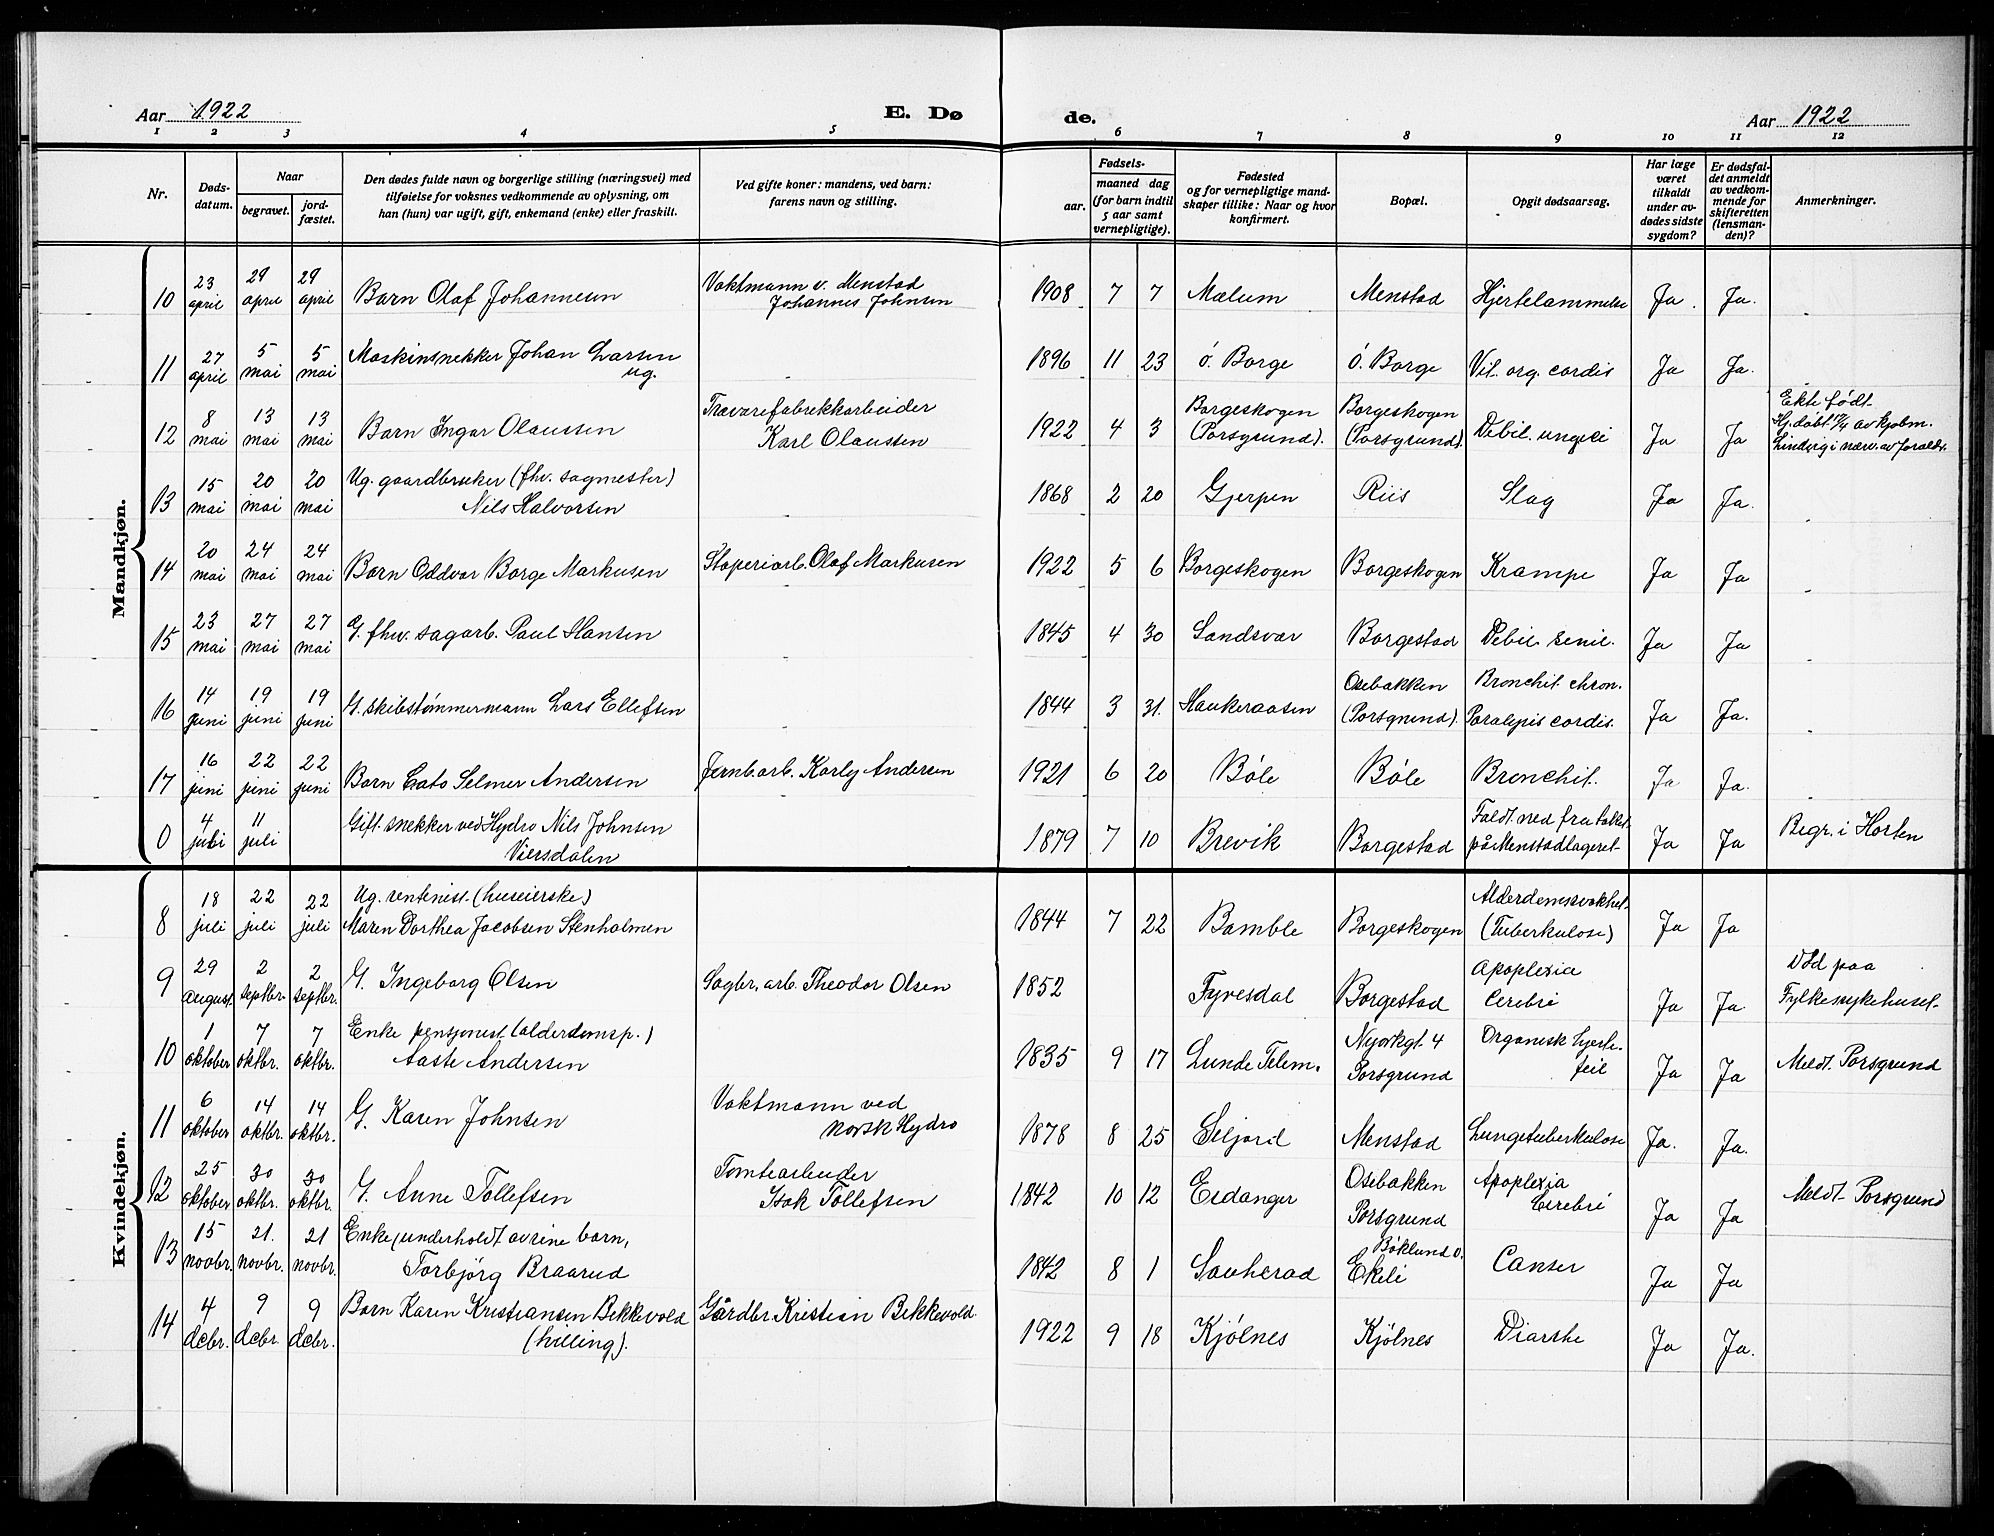 Aar 1922
E. Døde.
Aar 1922
1 2 3 4 5 6 7 8 9 10 11 12
Nr.
Døds-datum.
Naar
begravet.
jord-fæstet.
Den dødes fulde navn og borgerlige stilling (næringsvei) med
tilføielse for voksnes vedkommende av oplysning, om
han (hun) var ugift, gift, enkemand (enke) eller fraskilt.
Ved gifte koner: mandens, ved barn:
farens navn og stilling.
Fødsels-
aar.
maaned dag
(for barn indtil
5 aar samt
vernepligtige).
Fødested
og for vernepligtige mand-
skaper tillike: Naar og hvor
konfirmert.
Bopæl.
Opgit dødsaarsag.
Har læge
været
tilkaldt
under av-
dødes sidste
sygdom?
Er dødsfal-
det anmeldt
av vedkom-
mende for
skifteretten
(lensman-
den)?
Anmerkninger.
Mandkjøn.
10 23 april 29 april 29 april Barn Olaf Johannesen Vaktmann v. Menstad Johannes Johnsen 1908 7 7 Mælum Menstad Hjertelammelse Ja. Ja.
11 27 april 5 mai 5 mai Maskinsnekker Johan Larsen ug. 1896 11 23 ö. Borge Ö. Borge Vit. org. cordis Ja Ja.
12 8 mai 13 mai 13 mai Barn Ingar Olaussen Trævarefabrekkarbeider Karl Olaussen 1922 4 3 Borgeskogen (Porsgrund). Borgeskogen (Porsgrund). Debil. ungeci Ja Ja Ekte født. Hj. døbt 17/4 av kjøbm. Lindvig i nærv. av foreldr.
13 15 mai 20 mai 20 mai Ug. gaardbruker (fhv. sagmester) Nils Halvorsen 1868 2 20 Gjerpen Riis Slag Ja Ja.
14 20 mai 24 mai 24 mai Barn Oddvar Borge Markusen Støperiarb. Olaf Markusen 1922 5 6 Borgeskogen Borgeskogen Krampe Ja Ja
15 23 mai 27 mai 27 mai G. fhv. sagarb. Paul Hansen 1845 4 30 Sandsvær Borgestad Debil. senil. Ja Ja
16 14 juni 19 juni 19 juni G. skibstømmermann Lars Ellefsen 1844 3 31. Haukeraasen Osebakken (Porsgrund). Bronchit. chron. Paralysis cordis. Ja Ja.
17 16 juni 22 juni 22 juni Barn Cato Selmer Andersen Jernb. arb. Karly Andersen 1921 6 20 Bøle Bøle Bronchit. Ja Ja.
0 4 juli 11 juli Gift. snekker ved Hydro Nils Johnsen Viersdalen 1879 7 10 Brevik Borgestad Faldt ned fra taket på Menstadlageret Ja Ja Begr. i Horten
Kvindekjøn.
8 18 juli 22 juli 22 juli Ug. rentenist. (huseierske) Maren Dorthea Jacobsen Stenholmen 1844 7 22 Bamble Borgeskogen Alderdomssvakhet (Tuberkulose) Ja Ja
9 29 august. 2 septbr. 2 septbr. G. Ingeborg Olsen Sagbr. arb. Theodor Olsen 1852 Fyresdal Borgestad Apoplexia Cerebri Ja Ja Død paa Fylkesykehuset
10 1 oktober 7 oktbr. 7 oktbr. Enke pensjonist (alderdomsp.) Aaste Andersen 1835 9 17 Lunde Telem. Nyorkgt. 4 Porsgrund Organisk hjertefeil Ja Ja Meldt. Porsgrund
11 6 oktober 14 oktbr. 14 oktbr. G. Karen Johnsen Vaktmann ved Norsk Hydro 1878 8 25 Seljord Menstad Lungetuberkulose Ja. Ja.
12 25 oktober 30 oktbr. 30 oktbr. G. Anne Tollefsen Tomtearbeider Isak Tollefsen 1842 10 12 Eidanger Osebakken Porsgrund Apoplexia Cerebri Ja Ja Meldt. Porsgrund
13 15 novbr. 21. novbr. 21 novbr. Enke, underholdt av sine barn, Torbjörg Braarud 1842 8 1 Sauherad Bøklund o. Ekeli Canser Ja Ja
14 4 debr. 9 debr. 9 debr. Barn Karen Kristiansen Bekkevold (tvilling). Gårdbr. Kristian Bekkevold 1922 9 18 Kjölnes Kjölnes Diarrhe Ja Ja.